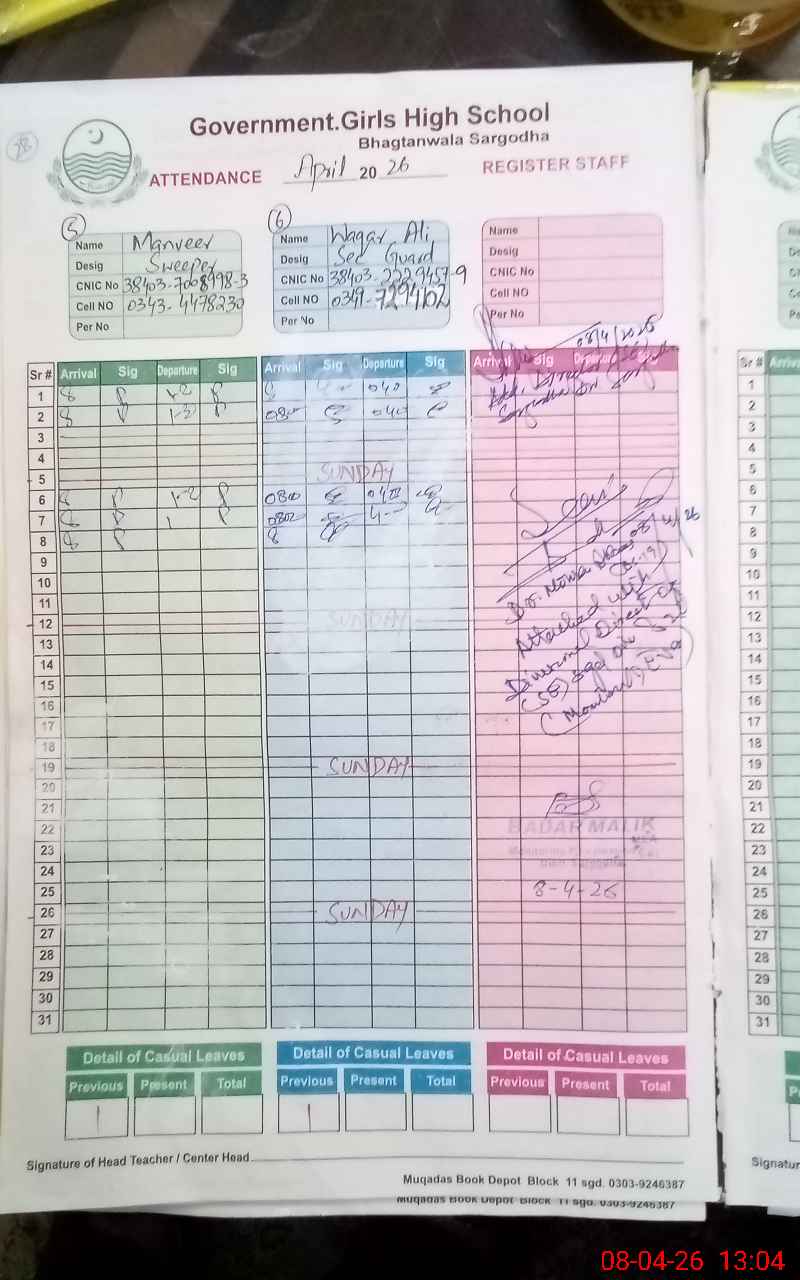 38
Government.Girls High School
Bhagtanwala Sargodha
ATTENDANCE April 2026 REGISTER STAFF
5
Name Manveer
Desig Sweeper
CNIC No 38403-7068998-3
Cell NO 0343-4478230
Per No
6
Name Waqar Ali
Desig Sec Guard
CNIC No 38403-2229457-9
Cell NO 0349-7294102
Per No
Name
Desig
CNIC No
Cell NO
Per No
08/4/2026
Sr # Arrival Sig Departure Sig Arrival Sig Departure Sig Arrival Sig Departure Sig
1 8 1-2 8 040
2 8 1-2 0800 040
3
4
5 SUNDAY
6 8 1-2 0800 0400
7 8 1 0802 4
8 8 8
9
10
11
12 SUNDAY
13
14
15
16
17
18
19 SUNDAY
20
21
22
23
24
25
26 SUNDAY
27
28
29
30
31
Attached with
Divisional Director
(SE) sgd
BADAR MALIK
MEA
8-4-26
Detail of Casual Leaves Detail of Casual Leaves Detail of Casual Leaves
Previous Present Total Previous Present Total Previous Present Total
1 1
Signature of Head Teacher / Center Head
Muqadas Book Depot Block 11 sgd. 0303-9246387
Muqadas Book Depot Block 11 sgd. 0303-9246387
Sr # Arriva
1
2
3
4
5
6
7
8
9
10
11
12
13
14
15
16
17
18
19
20
21
22
23
24
25
26
27
28
29
30
31
Signatur
08-04-26 13:04